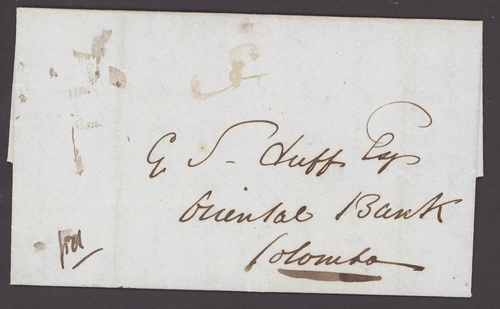 G S Duff Esq
Oriental Bank
Colombo
pd